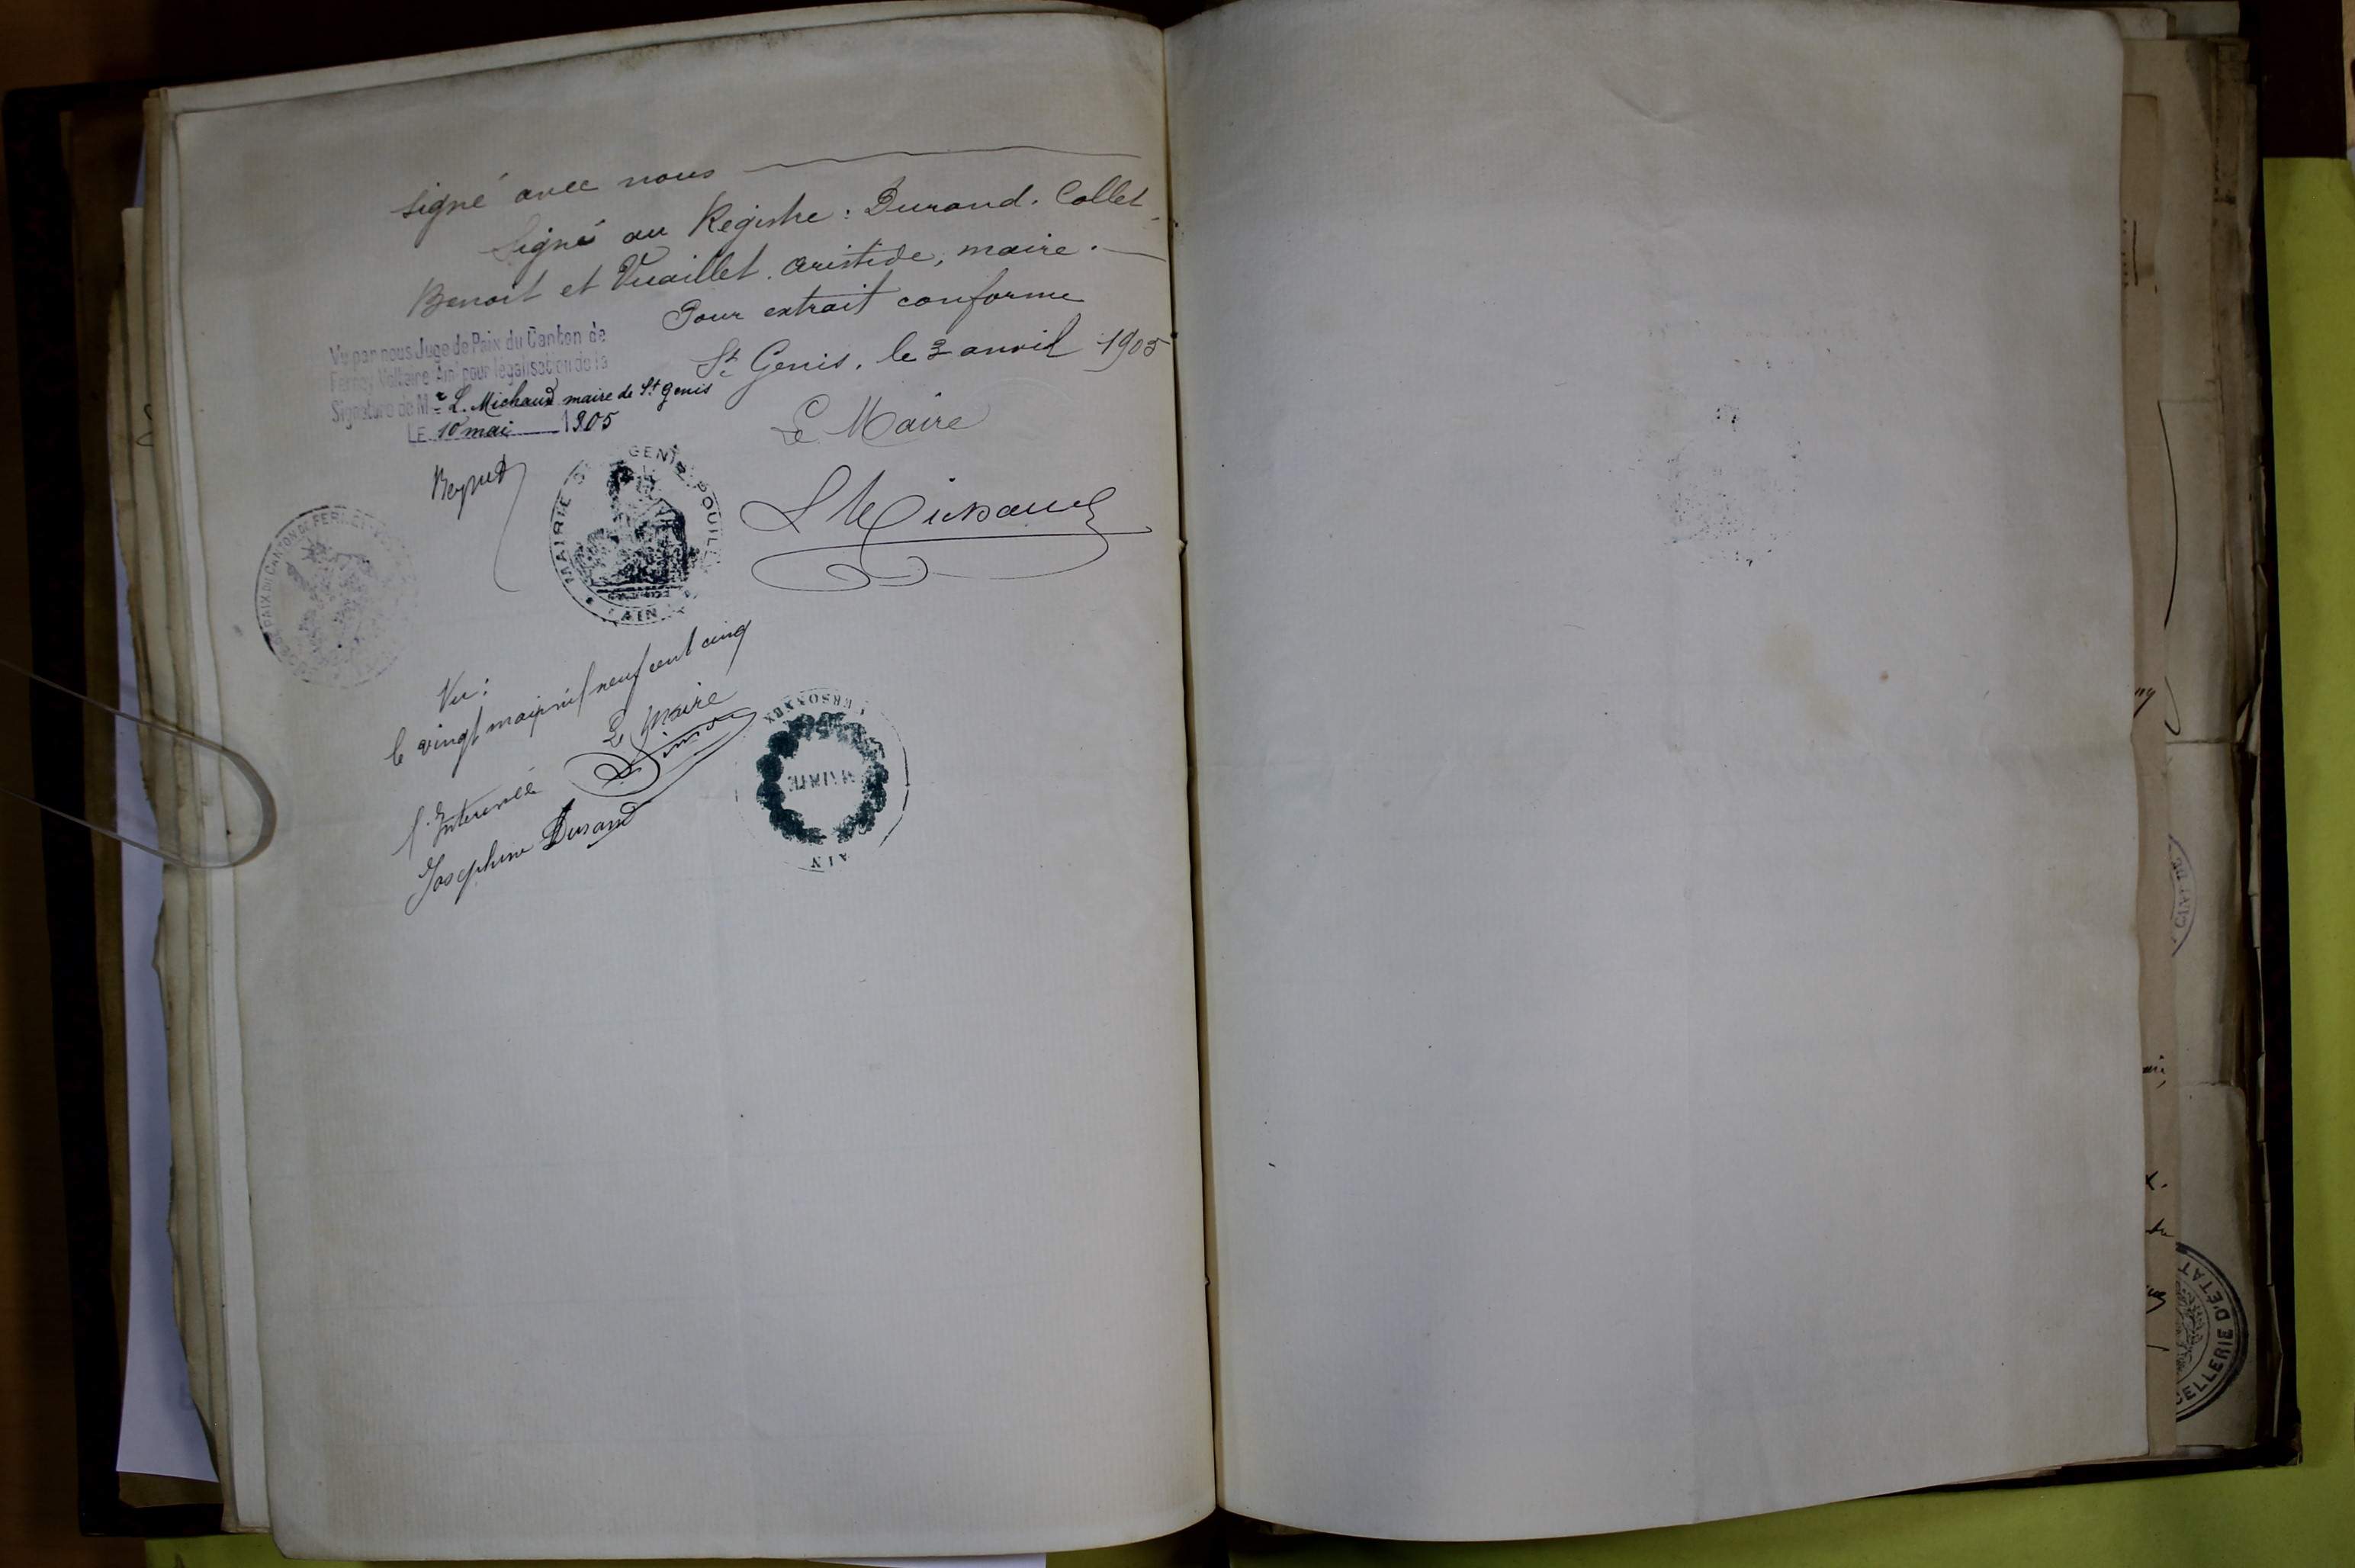 signé avec nous
Signé au Registre : Durand. Collet.
Benoit et Vuaillet. aristide, maire.
Pour extrait conforme
St Genis, le 3 avril 1905
Vu par nous Juge de Paix du Canton de
Ferney Voltaire Ain pour légalisation de la
Signature de Mr L. Michaud maire de St Genis
LE 10 mai 1905
Le Maire
L Michaud
MAIRIE GENIS POUILLY
AIN
PAIX DU CANTON DE FERNEY
Vu:
le vingt mai mil neuf cent cinq
Le Maire
l'Intéressée
Joséphine Durand
VERSONNEX
MAIRIE
AIN
CELLERIE D'ÉTAT